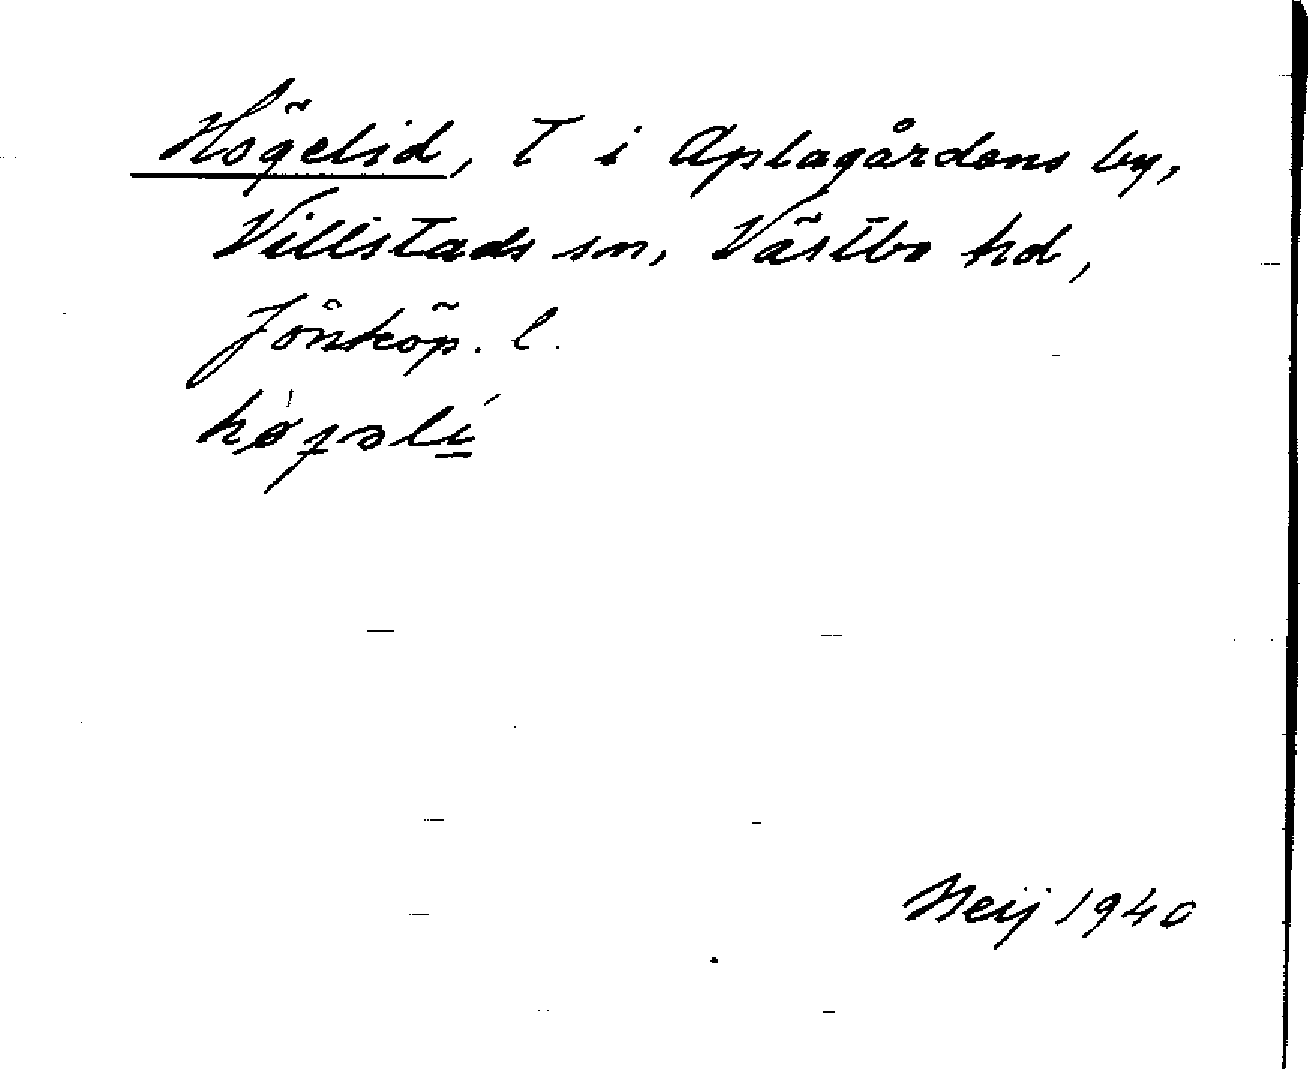 Högelid, T i Aplagårdens by,
Villstads sn, Västbo hd,
Jönköp. l.
Heij 1940